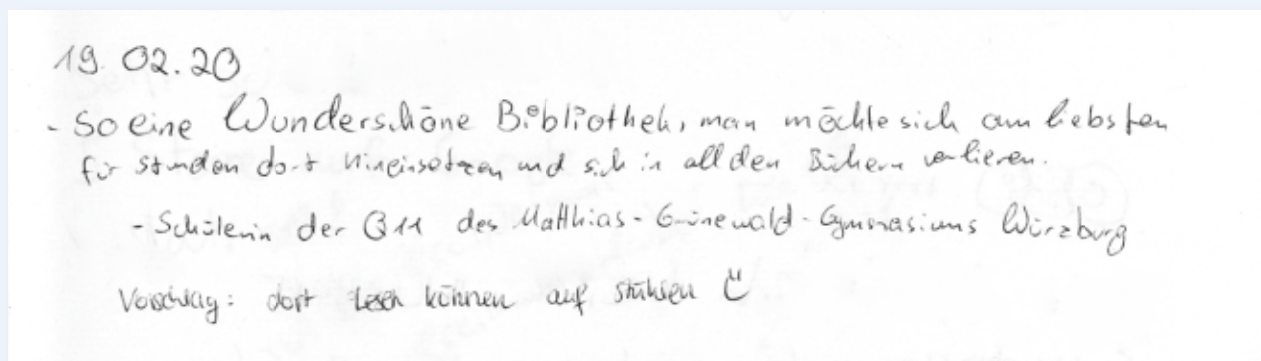 19.02.20
- So eine Wunderschöne Bibliothek, man möchte sich am liebsten
für stunden dort hineinsetzen und sich in all den Büchern verlieren.
- Schülerin der Q11 des Matthias-Grünewald-Gymnasiums Würzburg
Vorschlag: dort lesen können auf stühlen Ü